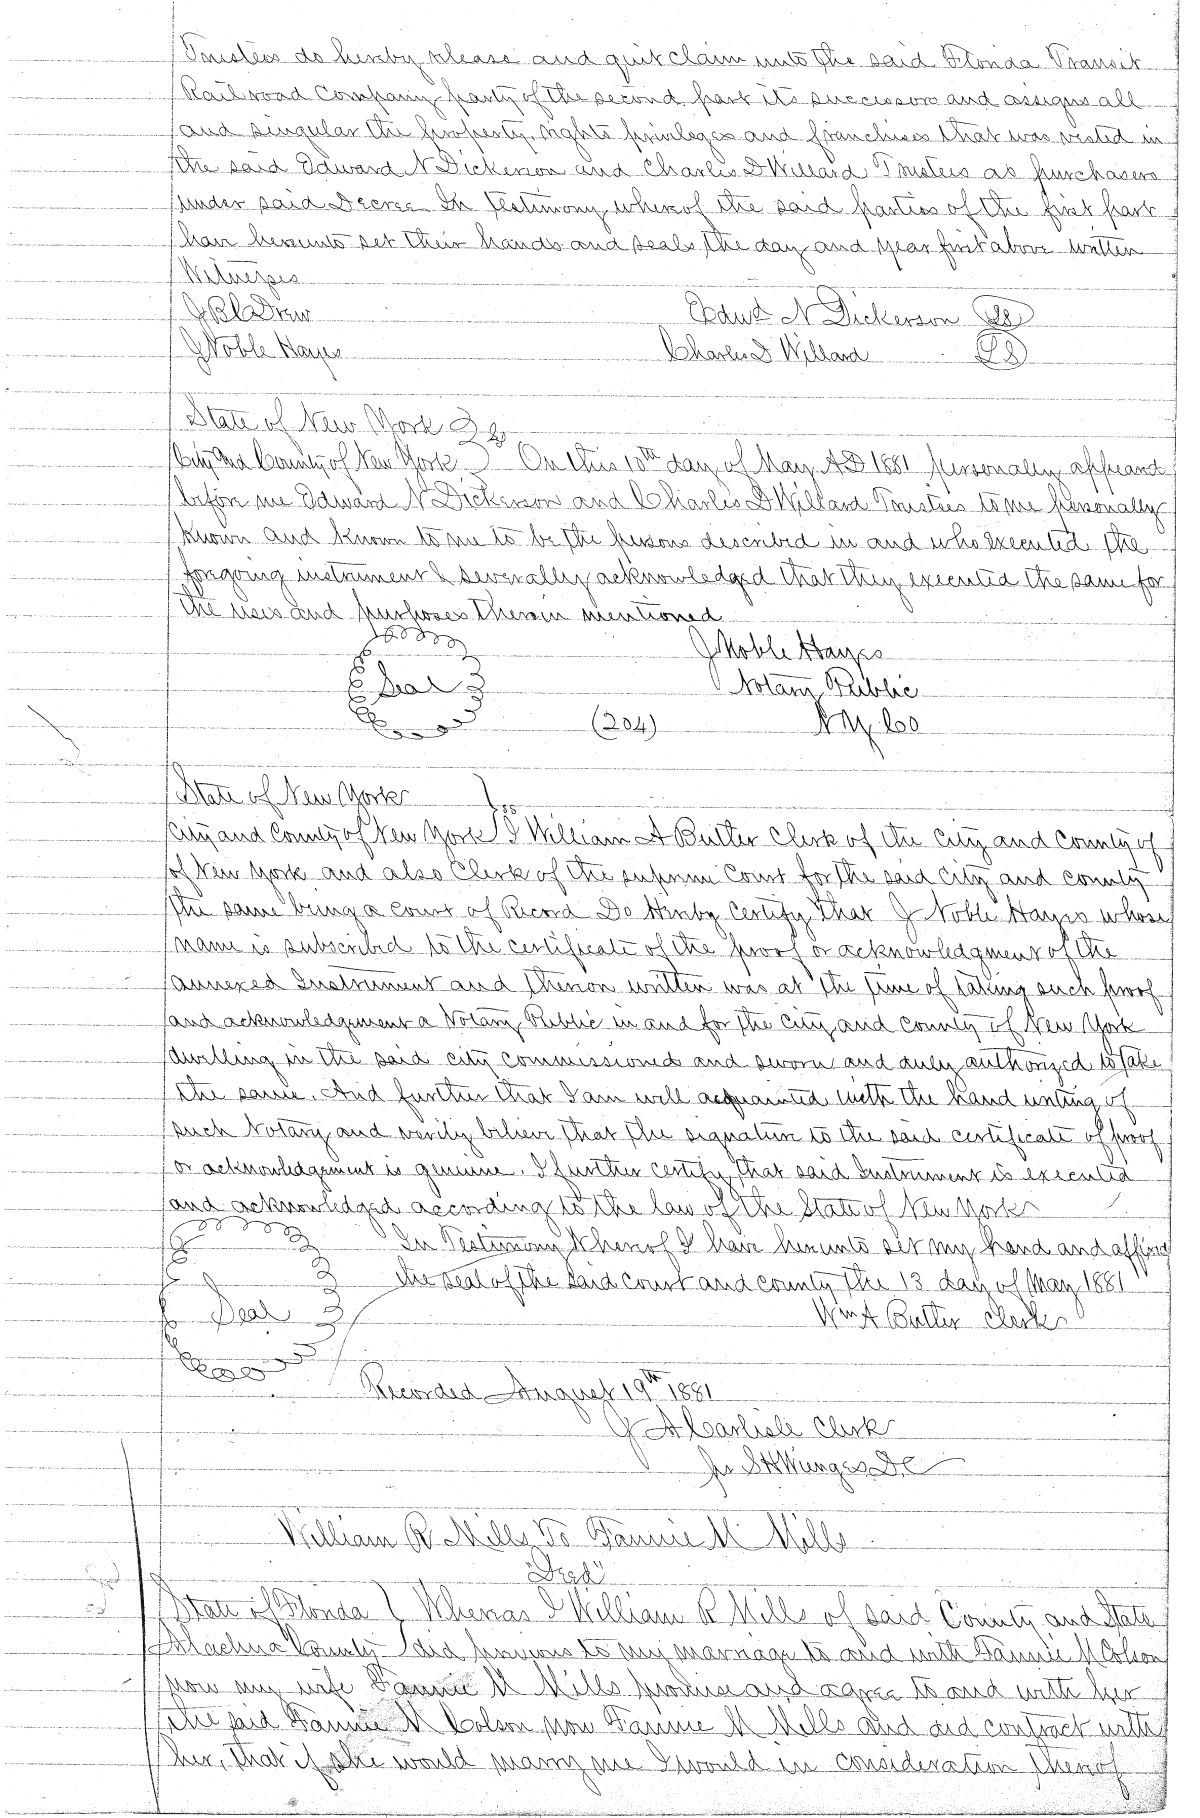 Trustees do hereby release and quit claim unto the said Florida Transit
Railroad Company party of the second part its successors and assigns all
and singular the property, rights privileges and franchises that was vested in
the said Edward N Dickerson and Charles D Willard Trustees as purchasers
under said Decree In Testimony whereof the said parties of the first part
have hereunto set their hands and seals the day and year first above written
Witnesses
J B C Drew Edwd N Dickerson LS
J Noble Hayes Charles D Willard LS
State of New York } ss
City and County of New York } On this 10th day of May AD 1881 personally appeared
before me Edward N Dickerson and Charles D Willard Trustees to me personally
known and known to me to be the persons described in and who executed the
foregoing instrument & severally acknowledged that they executed the same for
the uses and purposes therein mentioned
J Noble Hayes
Seal Notary Public
(204) NY Co
State of New York } ss
City and County of New York } I William A Butler Clerk of the City and County of
of New York and also Clerk of the supreme Court for the said City and County
the same being a Court of Record Do Hereby Certify that J Noble Hayes whose
name is subscribed to the certificate of the proof or acknowledgment of the
annexed Instrument and thereon written was at the time of taking such proof
and acknowledgement a Notary Public in and for the City and County of New York
dwelling in the said city commissioned and sworn and duly authorized to take
the same. And further that I am well acquainted with the hand writing of
such Notary and verily believe that the signature to the said certificate of proof
or acknowledgement is genuine. I further certify that said Instrument is executed
and acknowledged according to the law of the State of New York
In Testimony Whereof I have hereunto set my hand and affixed
the seal of the said court and county the 13 day of May 1881
Seal Wm A Butler Clerk
Recorded August 19th 1881
J A Carlisle Clerk
per D.C
William R Mills To Fannie M Mills
"Deed"
State of Florida } Whereas I William R Mills of said County and State
Alachua County } did previous to my marriage to and with Fannie M Colson
now my wife Fannie M Mills promise and agree to and with her
the said Fannie M Colson now Fannie M Mills and did contract with
her, that if she would marry me I would in consideration thereof